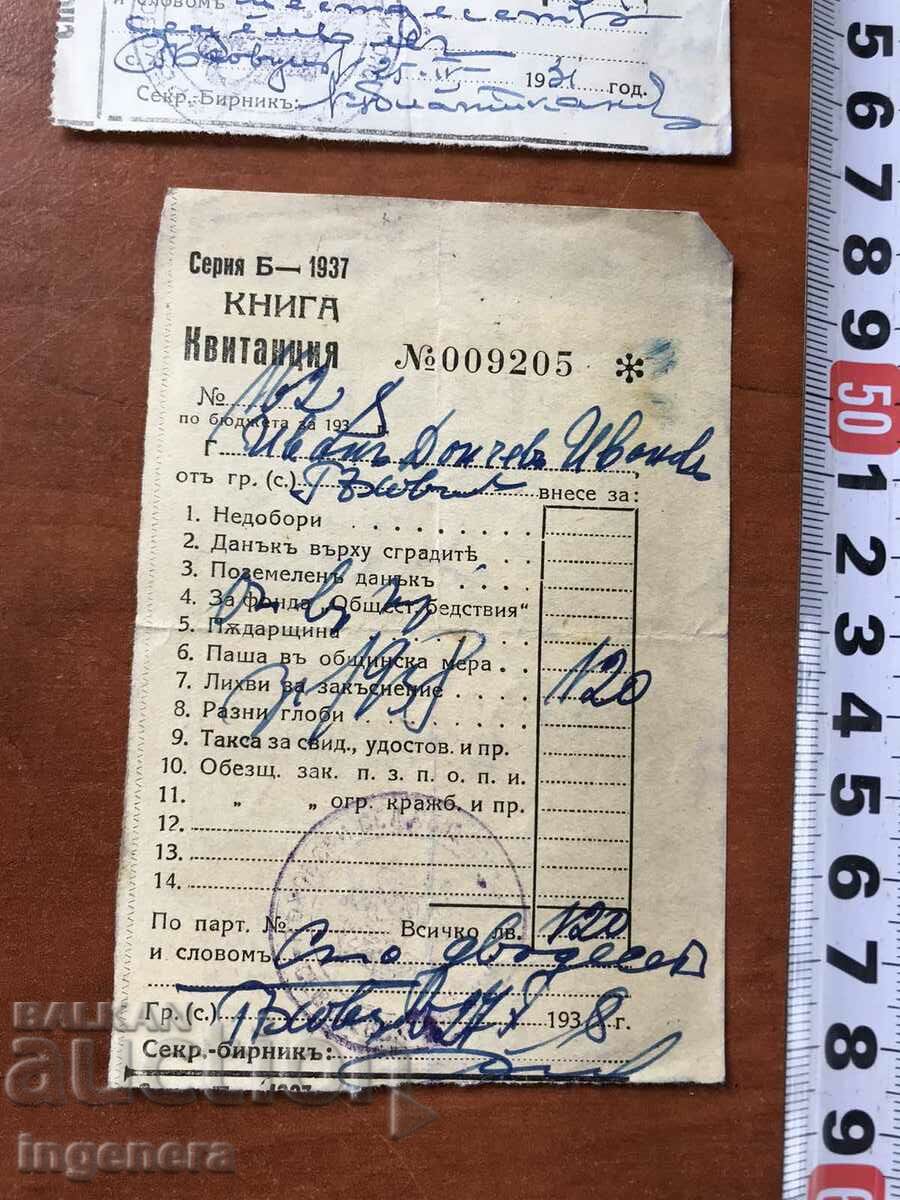 и словомъ
25-IV- 1931 год.
Секр.-Бирникъ:
Серия Б— 1937
КНИГА
Квитанция №009205 *
№ 1162
по бюджета за 1938 г.
Г Иванъ Дончевъ Иванов
отъ гр. (с.) Гъховци внесе за:
1. Недобори
2. Данъкъ върху сградитѣ
3. Поземеленъ данъкъ
4. За фонда „Общест. бедствия“
5. Пѫдарщина
6. Паша въ общинска мера 120
7. Лихви за закъснение
1938
8. Разни глоби
9. Такса за свид., удостов. и пр.
10. Обезщ. зак. п. з. п. о. п. и.
11. „ „ огр. кражб. и пр.
12.
13.
14.
По парт. № Всичко лв. 120
и словомъ Сто двадесет
Гр. (с.) Гъховци 17 X 1938 г.
Секр.-бирникъ:
1937
BALKAN
auction
ingenera
5 6 7 8 9 50 1 2 3 4 5 6 7 8 9